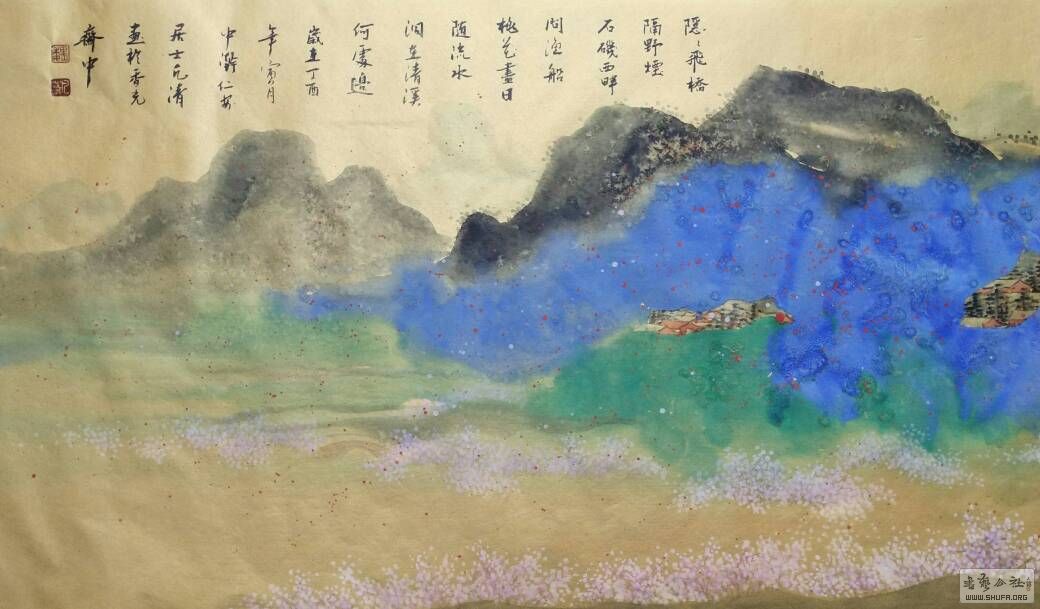 隐〻飛橋
隔野煙
石磯西畔
問漁船
桃花盡日
随流水
洞在清溪
何處邊
歲在丁酉
年寅月
中澣仁安
居士元清
畫於香光
齋中
WWW.SHUFA.ORG